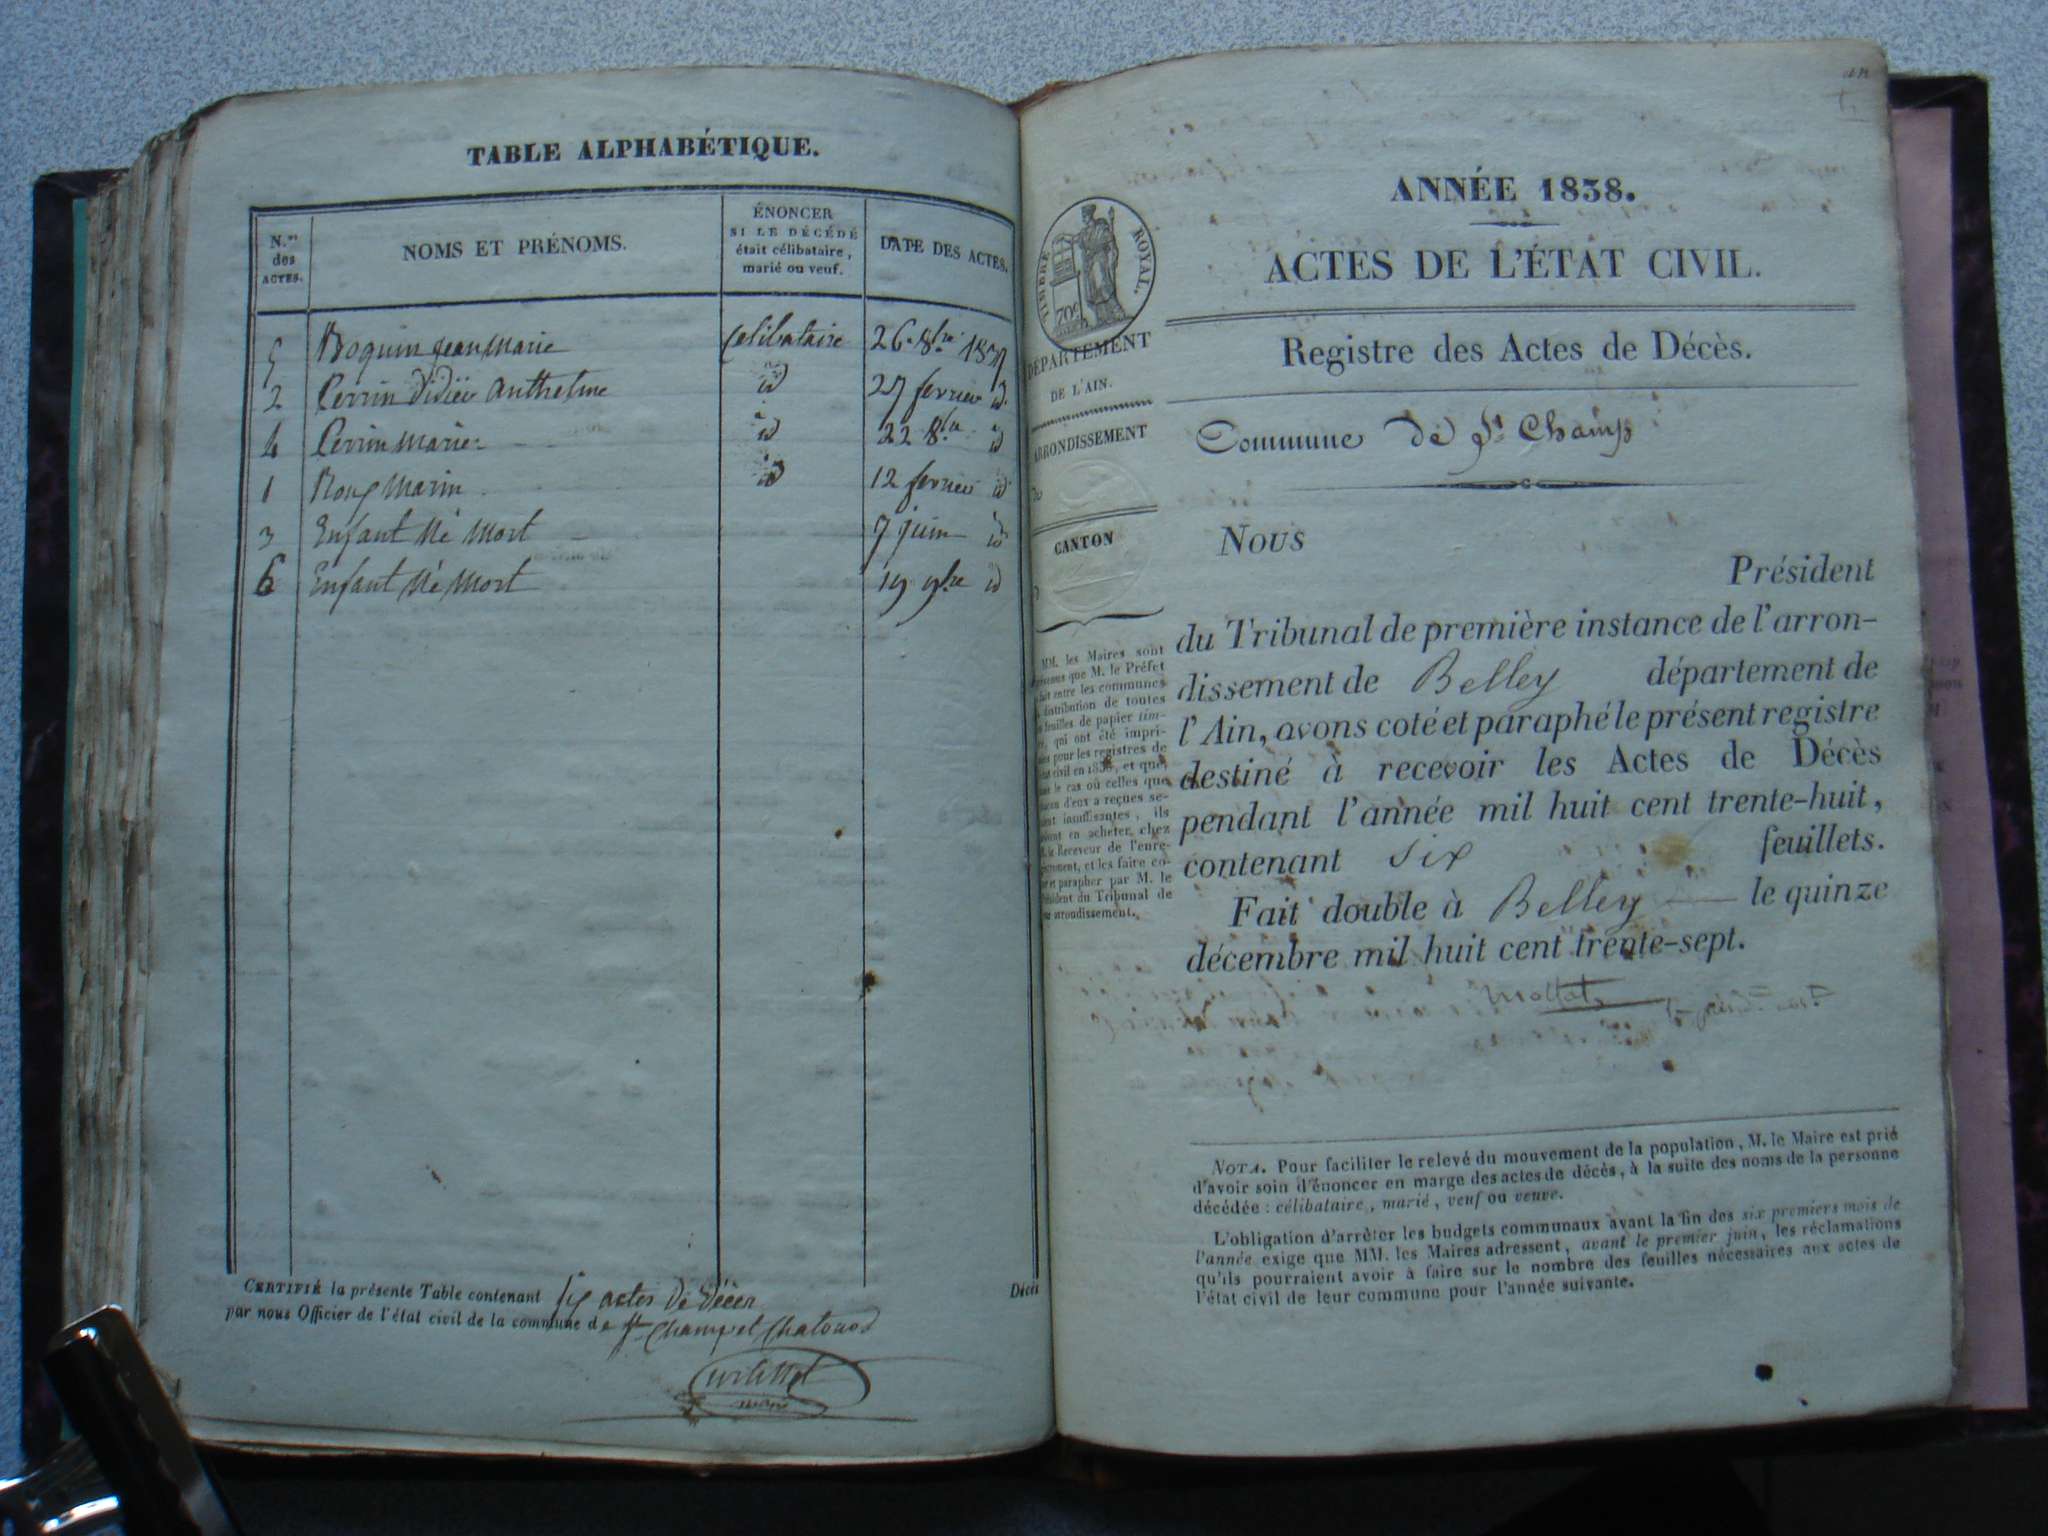 TABLE ALPHABÉTIQUE.
N.os des ACTES.
NOMS ET PRÉNOMS.
ÉNONCER
SI LE DÉCÉDÉ
était célibataire,
marié ou veuf.
DATE DES ACTES.
5 Boquin Jean Marie Celibataire 26 8bre 1837
2 Perrin Didier Anthelme id 27 fevrier id
4 Perrin Marie id 22 8bre id
1 Roux Marin id 12 fevrier id
3 Enfant Né Mort 7 juin id
6 Enfant Né Mort 19 9bre id
CERTIFIÉ la présente Table contenant six actes de Décès Décès
par nous Officier de l'état civil de la commune de St Champ et Chatonod
maire
ANNÉE 1838.
ACTES DE L'ÉTAT CIVIL.
Registre des Actes de Décès.
TIMBRE ROYAL.
70c
DÉPARTEMENT
DE L'AIN.
ARRONDISSEMENT
CANTON
Commune de St Champ
NOUS
Président
du Tribunal de première instance de l'arron-
dissement de Belley département de
l'Ain, avons coté et paraphé le présent registre
destiné à recevoir les Actes de Décès
pendant l'année mil huit cent trente-huit,
contenant six feuillets.
Fait double à Belley le quinze
décembre mil huit cent trente-sept.
MM. les Maires sont
que M. le Préfet
fait entre les communes
distribution de toutes
feuilles de papier tim-
qui ont été impri-
pour les registres de
civil en 1838, et que,
le cas où celles que
d'eux a reçues se-
insuffisantes, ils
en acheter chez
le Receveur de l'enre-
et les faire co-
et parapher par M. le
Président du Tribunal de
arrondissement.
NOTA. Pour faciliter le relevé du mouvement de la population, M. le Maire est prié
d'avoir soin d'énoncer en marge des actes de décès, à la suite des noms de la personne
décédée : célibataire, marié, veuf ou veuve.
L'obligation d'arrêter les budgets communaux avant la fin des six premiers mois de
l'année exige que MM. les Maires adressent, avant le premier juin, les réclamations
qu'ils pourraient avoir à faire sur le nombre des feuilles nécessaires aux actes de
l'état civil de leur commune pour l'année suivante.